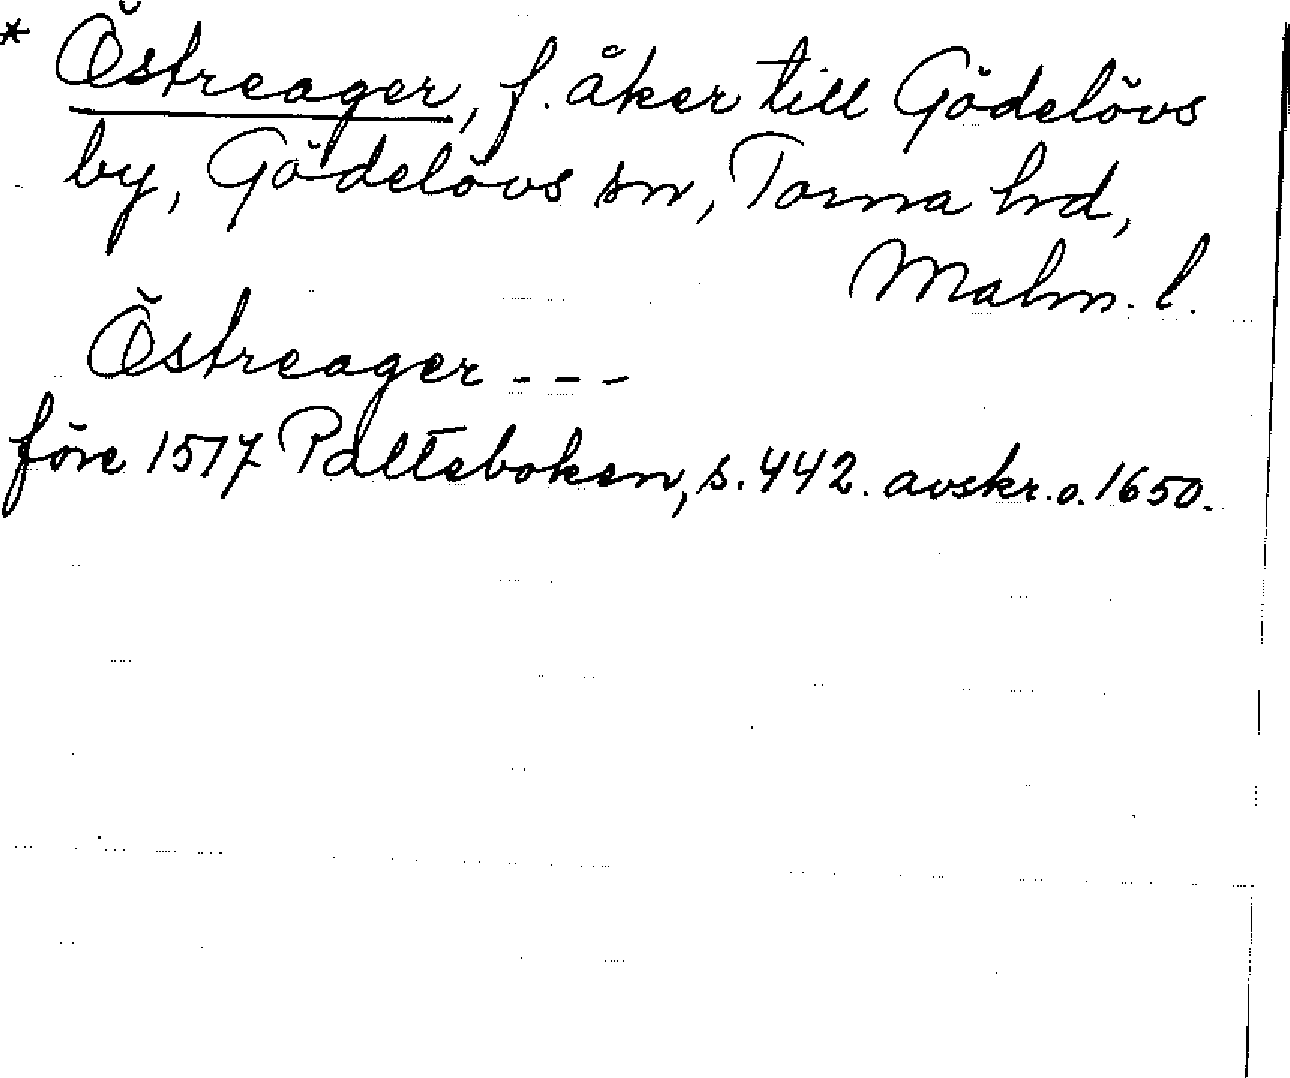 * Östreager, f. åker till Gödelövs
by, Gödelövs sn, Torna hd,
Malm. l.
Östreager - - -
före 1517 Palteboken, s. 442. avskr. o. 1650.